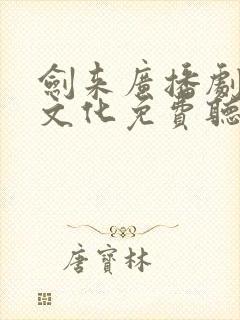 劍来廣播劇
文化免費聽
唐寶林